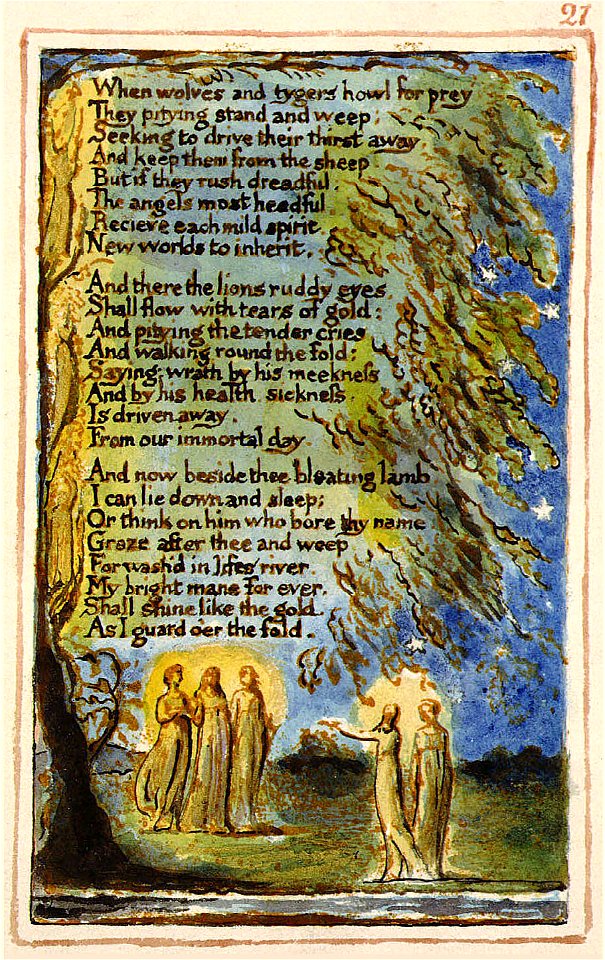 21
When wolves and tygers howl for prey
They pitying stand and weep;
Seeking to drive their thirst away,
And keep them from the sheep
But if they rush dreadful;
The angels most heedful
Recieve each mild spirit.
New worlds to inherit.
And there the lions ruddy eyes
Shall flow with tears of gold:
And pitying the tender cries
And walking round the fold:
Saying: wrath by his meekness
And by his health sickness.
Is driven away.
From our immortal day.
And now beside thee bleating lamb
I can lie down and sleep;
Or think on him who bore thy name
Graze after thee and weep
For wash'd in lifes river.
My bright mane for ever.
Shall shine like the gold.
As I guard o'er the fold.